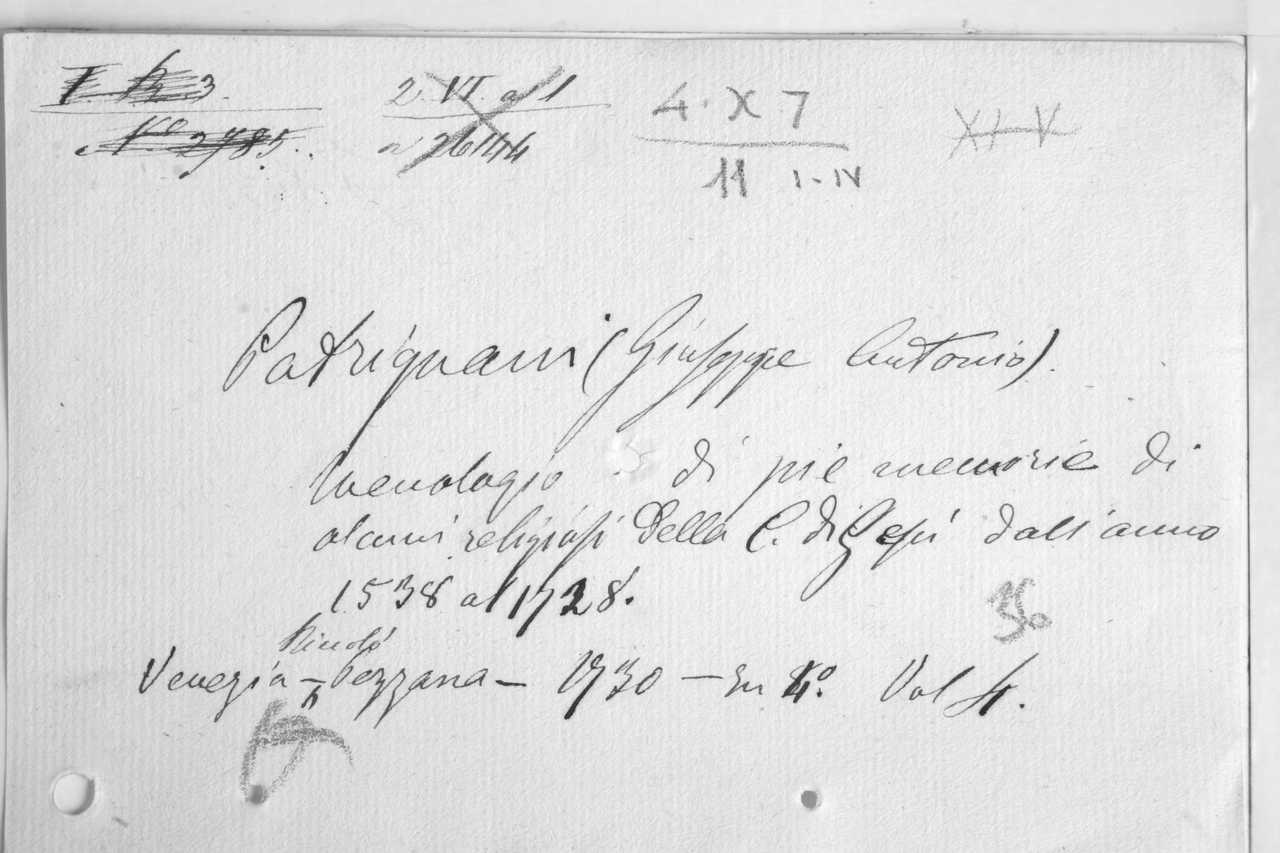 I. R. 3. 2. VI. a 1 4. X 7 XI V
No 2785. n 26144 11 I-IV
Patrignani (Giuseppe Antonio).
Menologio di pie memorie di
alcuni religiosi della C. di Gesù dall'anno
1538 al 1728.
Nicolò
Venezia - Pezzana - 1730 - In 4º. Vol 4.